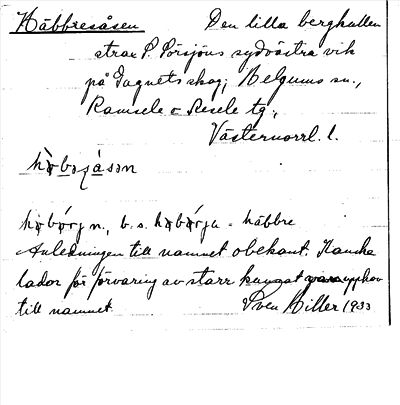 Häbbresåsen Den lilla bergkullen
strax P. Sörsjöns sydvästra vik
på Gagnets skog; Helgums sn.,
Ramsele o Resele tg.,
Västernorrl. l.
häbbre
Anledningen till namnet obekant. Kanske
lador för förvaring av starr kunnat vara upphov
till namnet. Sven Hiller 1933